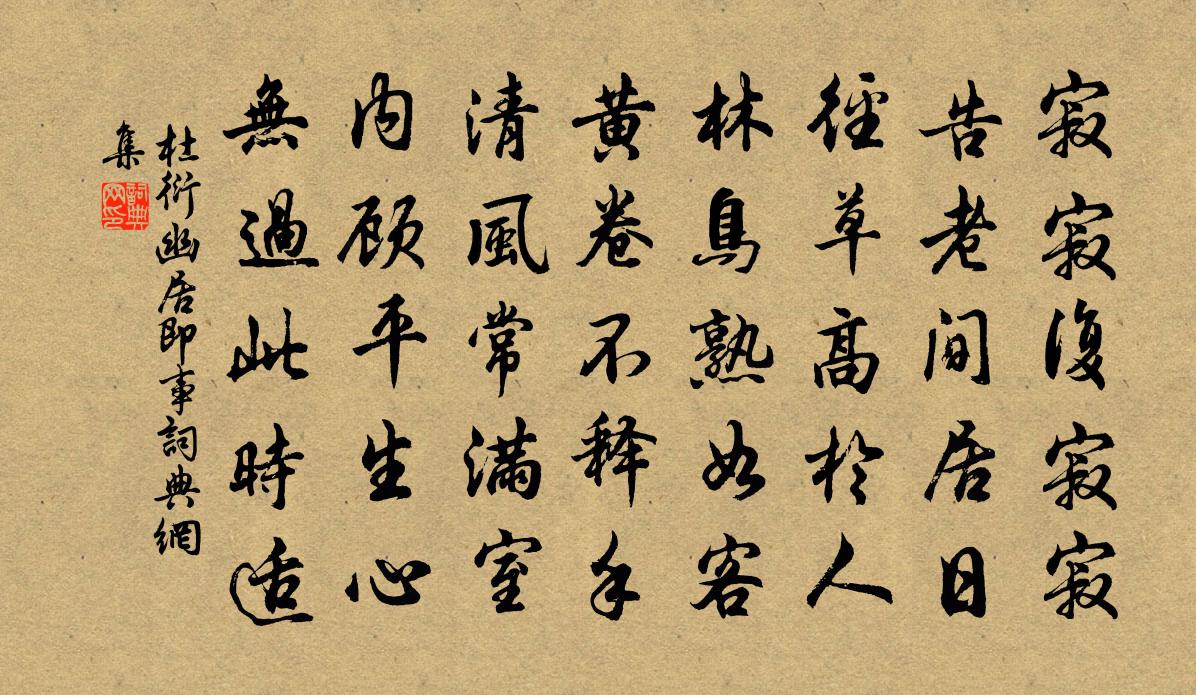 寂寂復寂寂
告老閒居日
徑草高於人
林鳥熟如客
黃卷不釋手
清風常滿室
內顧平生心
無過此時适
杜衍幽居即事詞典網
集
詞典
网印